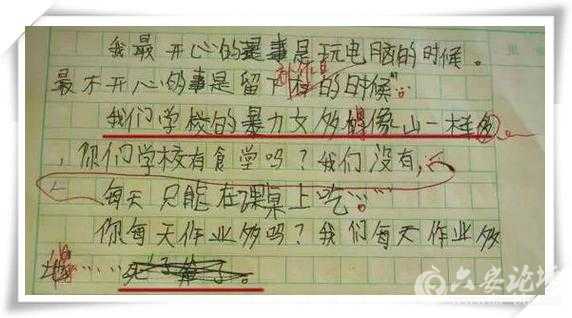 我最开心的事是玩电脑的时候。
最不开心的事是留下的时候。
我们学校的暴力文多得像山一样多
,你们学校有食堂吗?我们没有,
每天只能在课桌上吃……。
你每天作业多吗?我们每天作业多
得……死了算了。
六安论坛